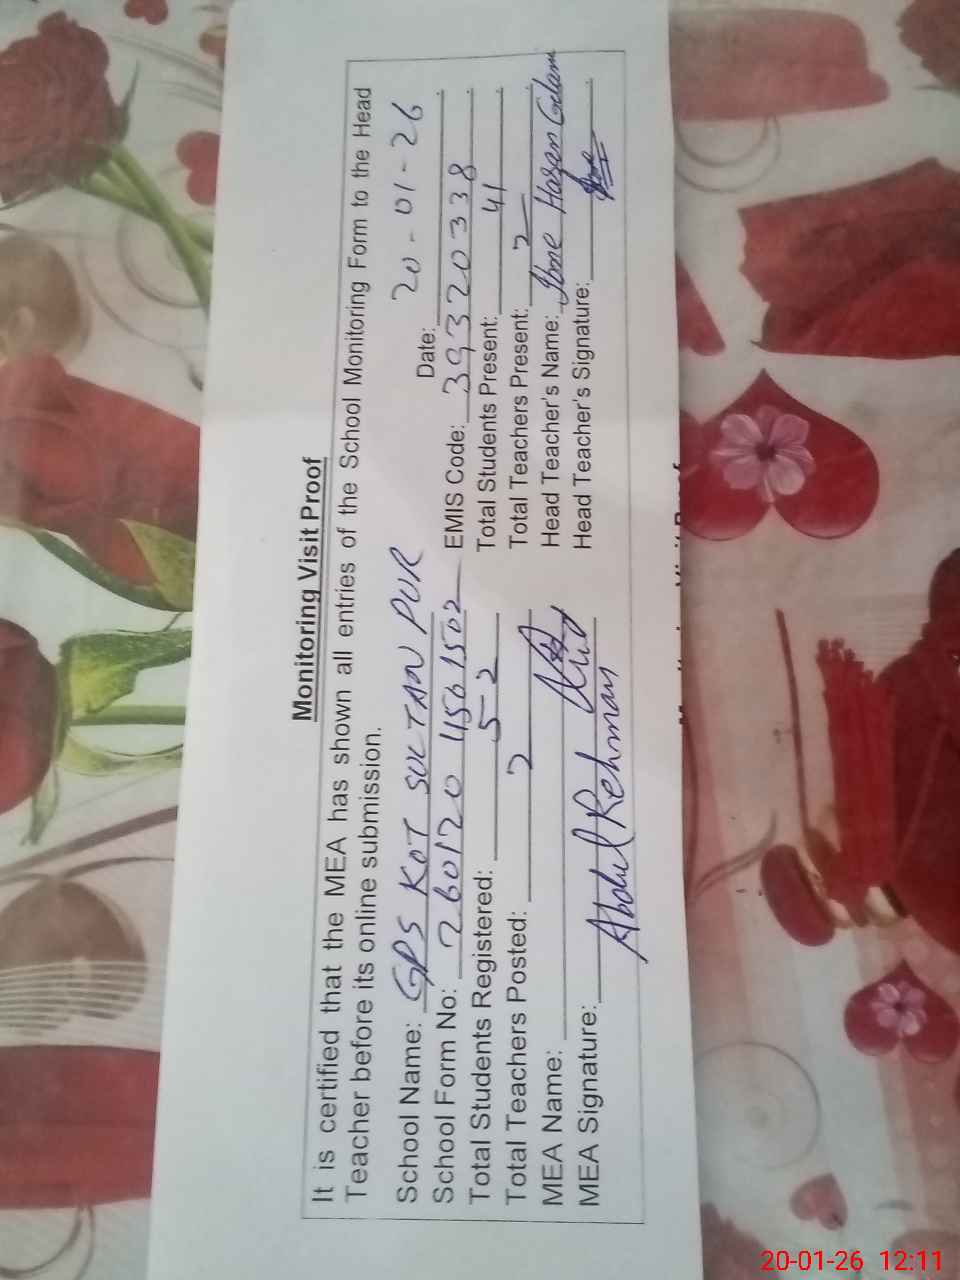 Monitoring Visit Proof
It is certified that the MEA has shown all entries of the School Monitoring Form to the Head
Teacher before its online submission.
School Name: GPS KOT SULTAN PUR Date: 20-01-26
School Form No: 260120 11561502 EMIS Code: 39320338
Total Students Registered: 52 Total Students Present: 41
Total Teachers Posted: 2 Total Teachers Present: 2
MEA Name: Head Teacher's Name: Hasan
MEA Signature: Abdul Rehman Head Teacher's Signature:
20-01-26 12:11